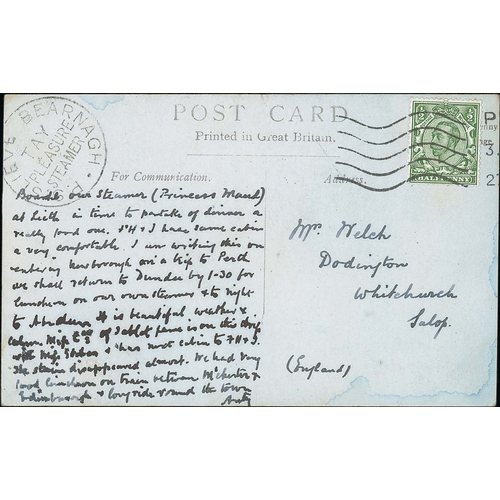 SLIEVE BEARNAGH
TAY
PLEASURE
STEAMER
POST CARD
Printed in Great Britain.
For Communication.
Address.
HALFPENNY
Boards our Steamer (Princess Maud)
at Leith in time to partake of dinner a
really good one. H & I have same cabin
a very comfortable. I am writing this on
entering Newborough on a trip to Perth
we shall return to Dundee by 1-30 for
luncheon on our own steamer & to night
to Aberdeen It is beautiful weather &
calm. Miss of is on this trip
with Miss & has next cabin to H & I.
She disappeared almost. We had very
good luncheon on train between M'chester &
Edinborough & long ride round the town
Mr. Welch
Dodington
Whitchurch
Salop.
(England)